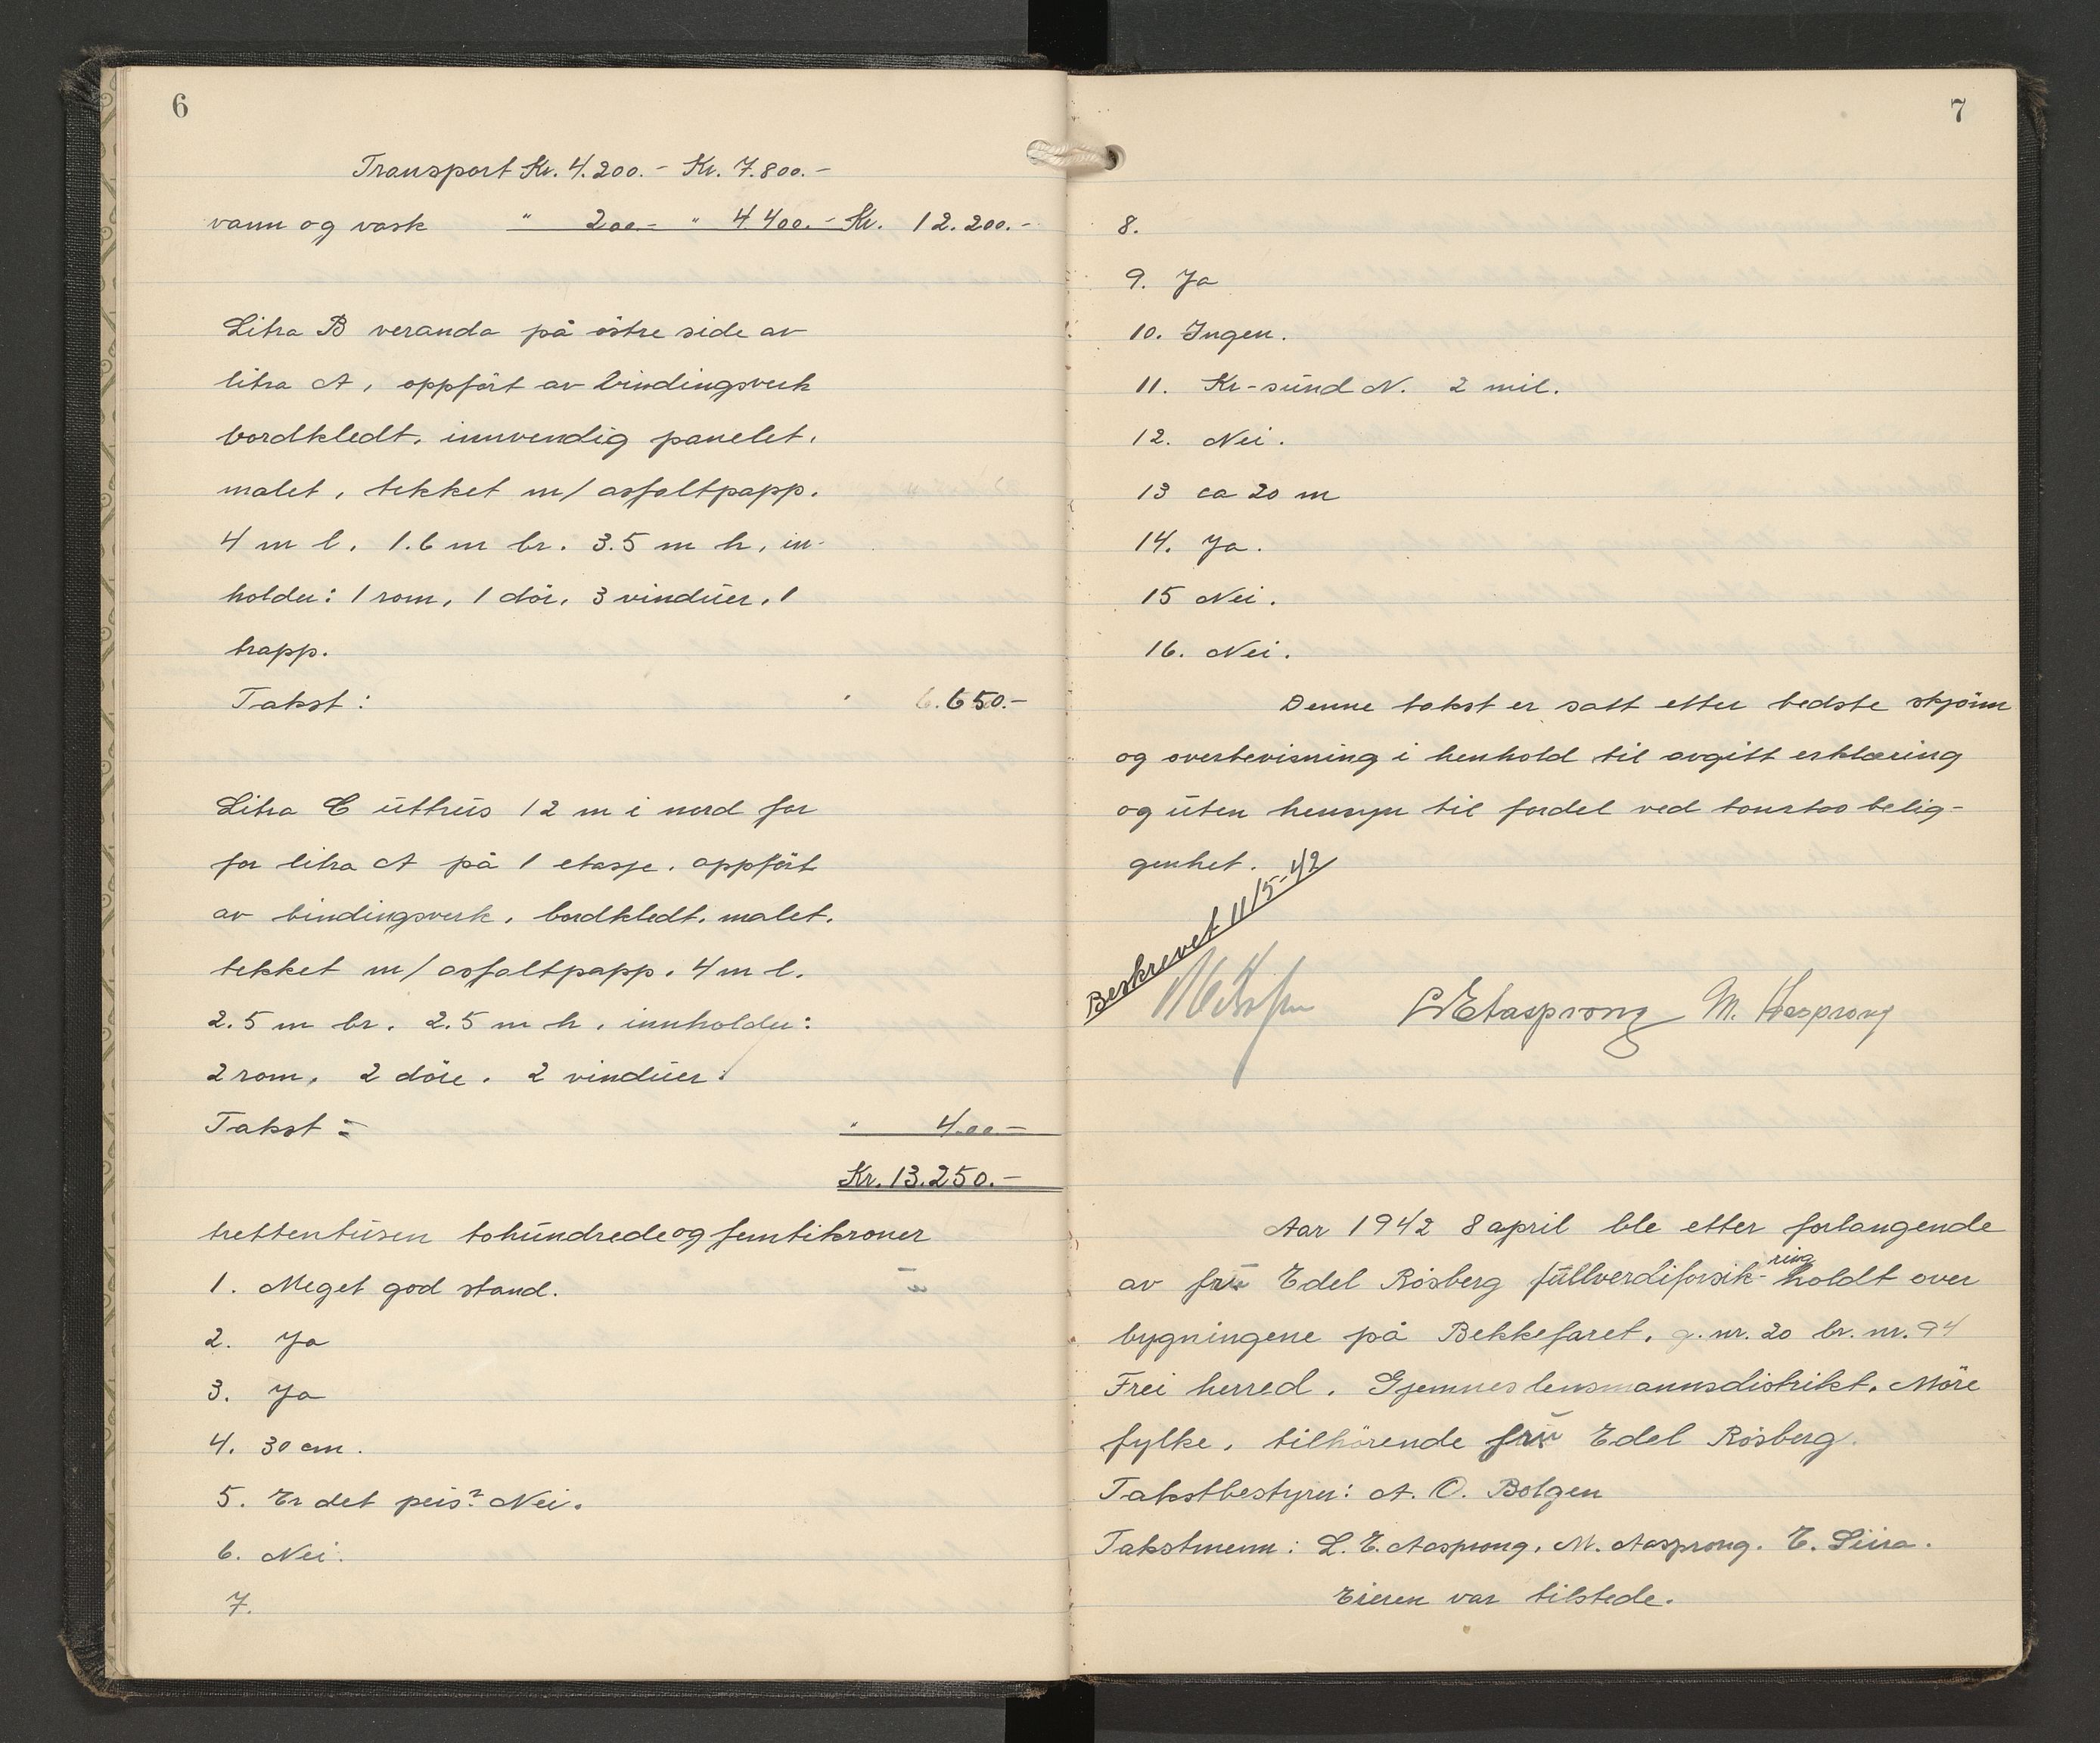 6
Transport Kr. 4.200.- Kr. 7.800.-
vann og vask " 200.- " 4.400.- Kr. 12.200.-
Litra B veranda på östre side av
litra A, oppfört av bindingsverk
bordkledt, innvendig panelet,
malet, tekket m/ asfaltpapp.
4 m l. 1.6 m br. 3.5 m h, in-
holder: 1 rom, 1 dör, 3 vindüer, 1
trapp.
Takst: " 650.-
Litra C üthüs 12 m i nord for
for litra A på 1 etasje. oppfört
av bindingsverk, bordkledt, malet,
tekket m/ asfaltpapp. 4 m l.
2.5 m br. 2.5 m h, innholder:
2 rom, 2 döre, 2 vindüer.
Takst: " 400.-
Kr. 13.250.-
trettentüsen tohündrede og femtikroner
1. Meget god stand.
2. Ja
3. Ja
4. 30 cm.
5. Er det peis? Nei.
6. Nei.
7.
7
8.
9. Ja
10. Ingen.
11. Kr-sünd N. 2 mil.
12. Nei.
13 ca 20 m
14. Ja.
15 Nei.
16. Nei.
Denne takst er satt etter bedste skjönn
og overbevisning i henhold til avgitt erklæring
og üten hensyn til fordel ved tomtas belig-
genhet.
Beskrevet 11/5-42
L E Aasprong M. Aasprong
Aar 1942 8 april ble etter forlangende
av frü Edel Rösberg füllverdiforsik-ring holdt over
bygningene på Bekkefaret, g. nr. 20 br. nr. 94
Frei herred, Gjemnes lensmannsdistrikt, Möre
fylke, tilhörende frü Edel Rösberg.
Takstbestyrer: A. O. Bolgen
Takstmenn: L. E. Aasprong, M. Aasprong. E. Liira.
Eieren var tilstede.